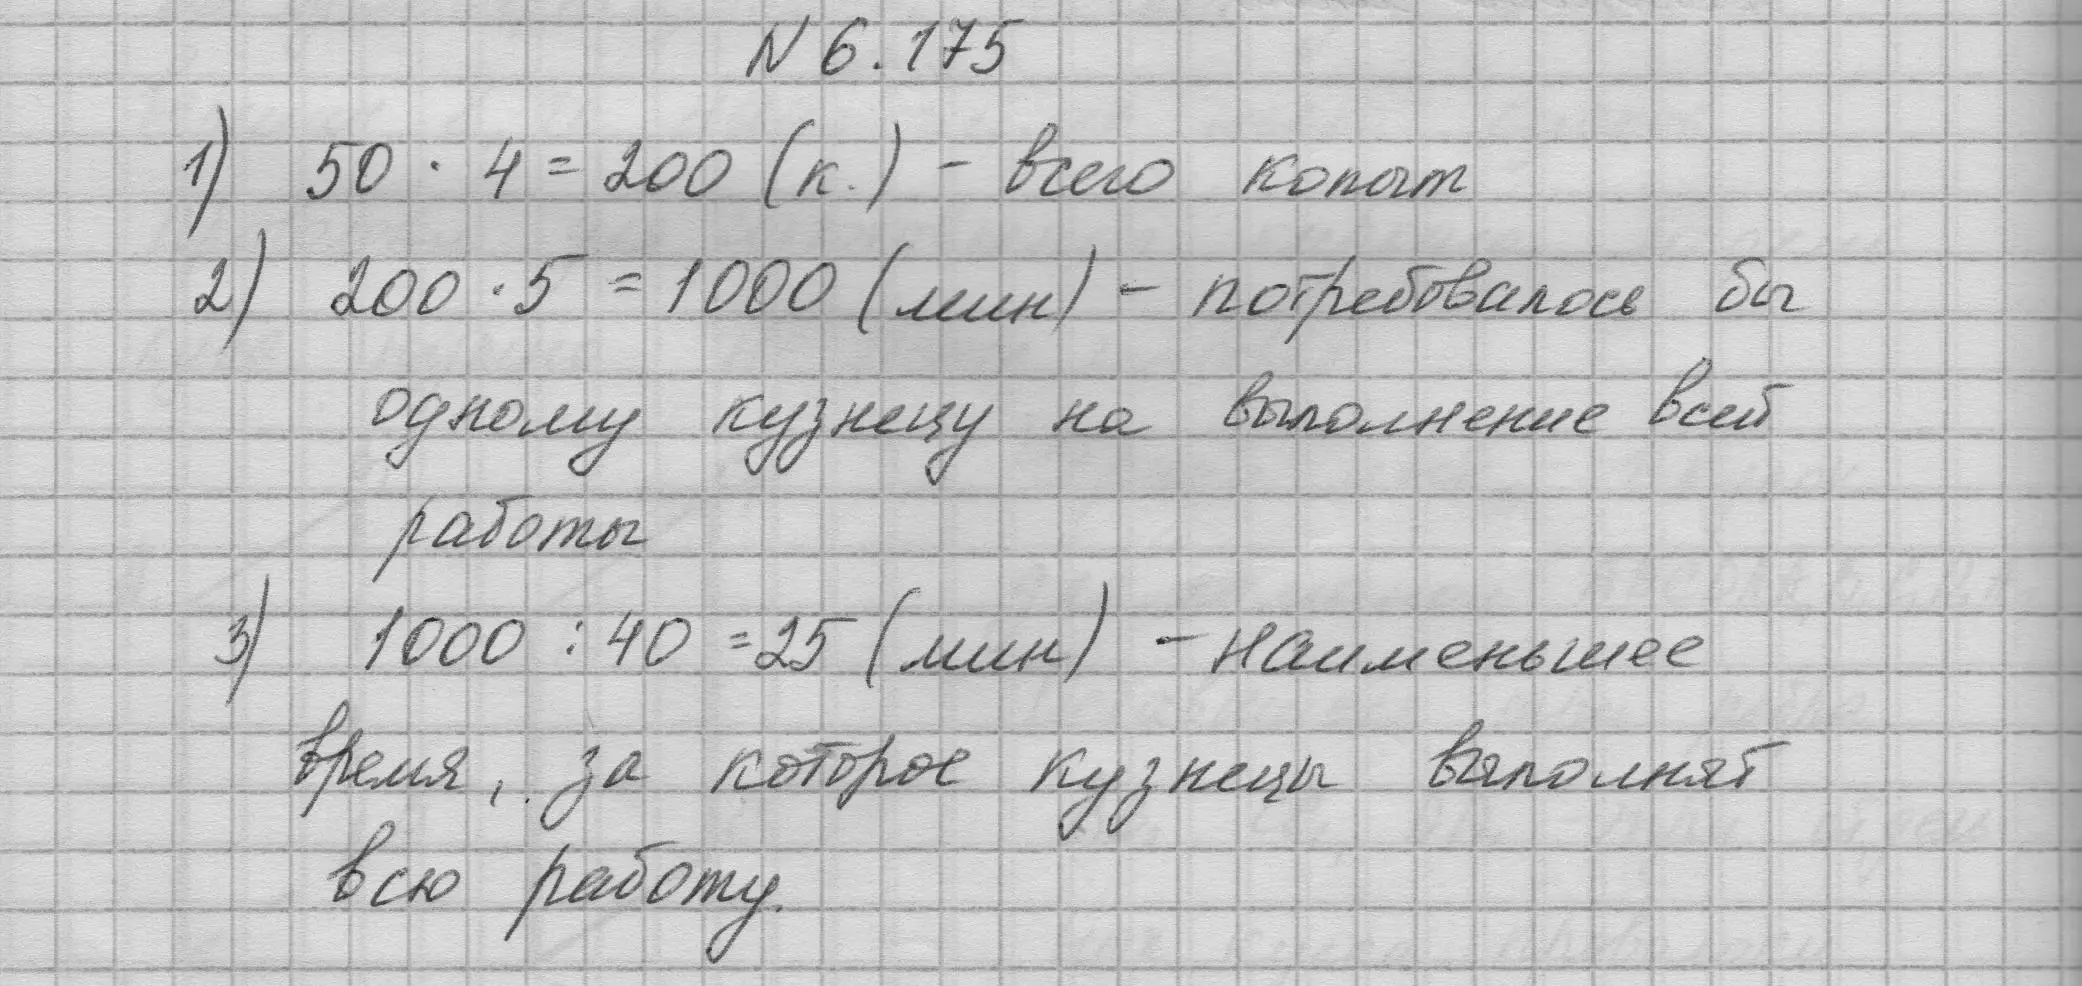 N 6.175
1) 50 · 4 = 200 (к.) - всего копыт
2) 200 · 5 = 1000 (мин) - потребовалось бы
одному кузнецу на выполнение всей
работы
3) 1000 : 40 = 25 (мин) - наименьшее
время, за которое кузнецы выполнят
всю работу.